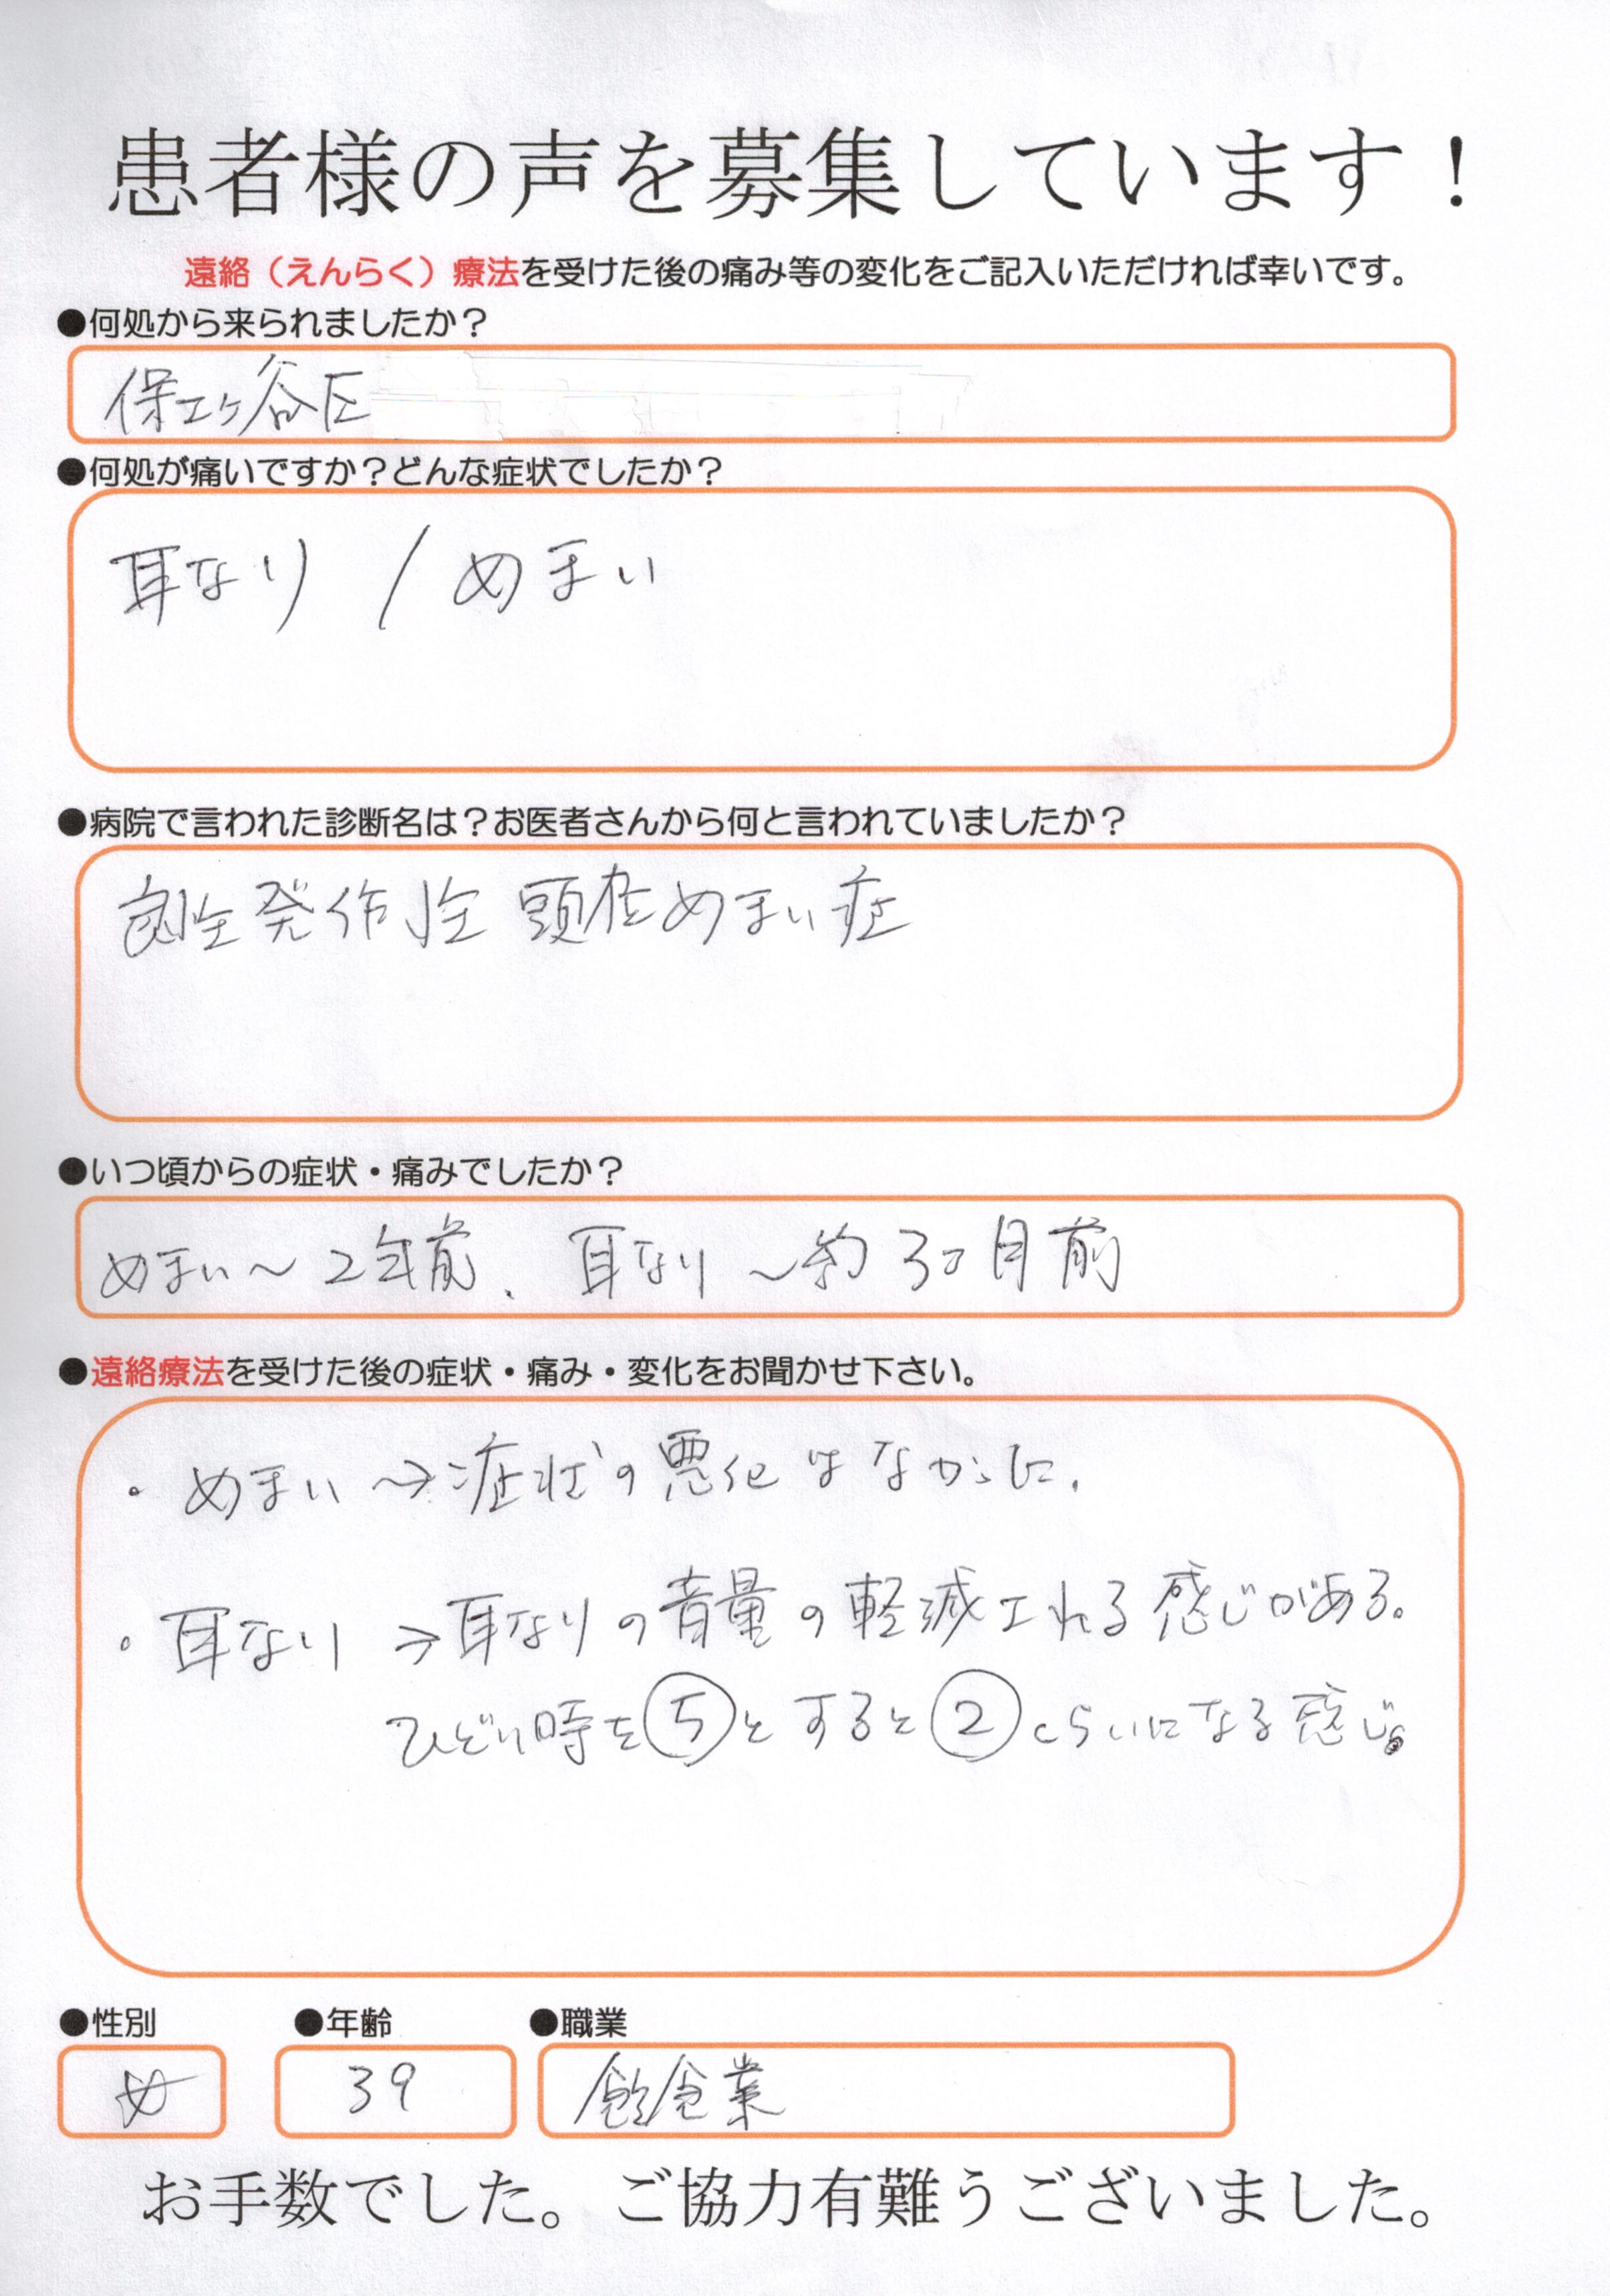 患者様の声を募集しています！
遠絡（えんらく）療法を受けた後の痛み等の変化をご記入いただければ幸いです。
●何処から来られましたか？
保土ヶ谷区
●何処が痛いですか？どんな症状でしたか？
耳なり / めまい
●病院で言われた診断名は？お医者さんから何と言われていましたか？
良性発作性頭位めまい症
●いつ頃からの症状・痛みでしたか？
めまい〜2年前、耳なり〜約3ヶ月前
●遠絡療法を受けた後の症状・痛み・変化をお聞かせ下さい。
・めまい→症状の悪化はなかった。
・耳なり→耳なりの音量の軽減される感じがある。
ひどい時を⑤とすると②くらいになる感じ。
●性別 ●年齢 ●職業
女 39 飲食業
お手数でした。ご協力有難うございました。